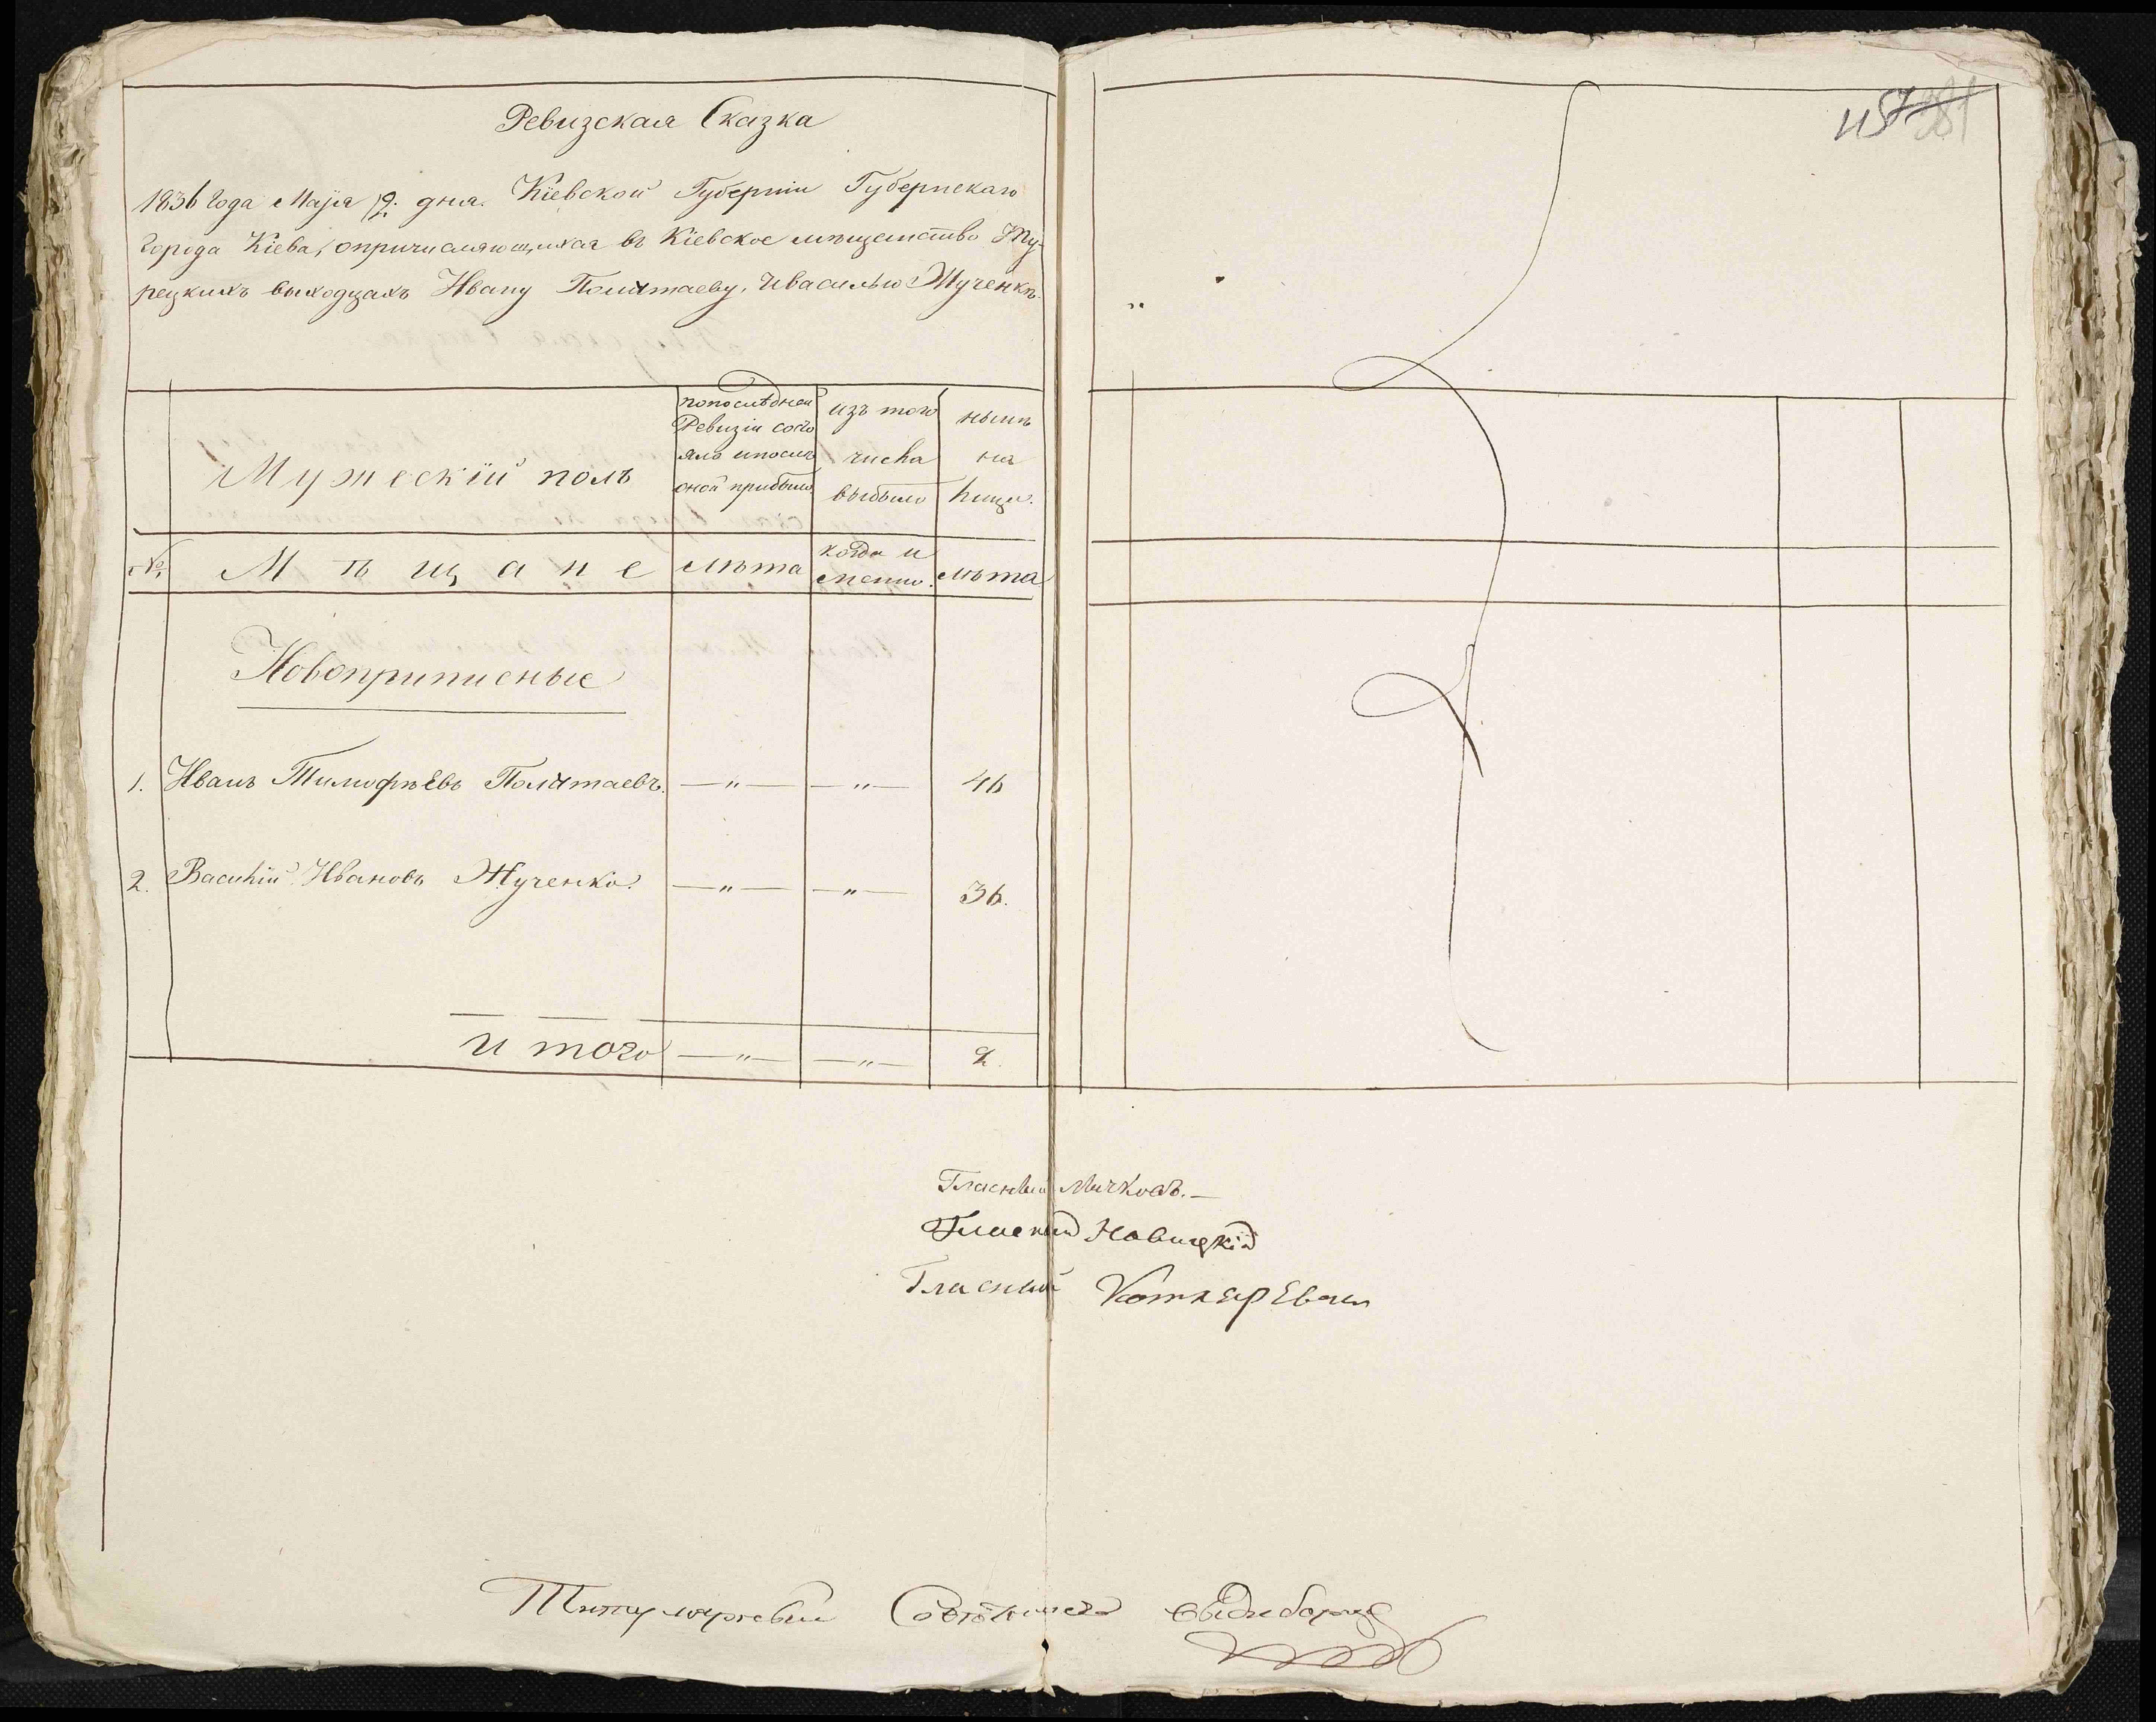 Ревизская Сказка
457 381
1836 Года Маія 2. дня. Кіевской Губерніи Губернскаго
города Кіева, опричисляющихся въ Кіевское мѣщанство Ту-
рецкихъ выходцахъ Ивану Политаеву, и Василью Жученкѣ.
Мужескій полъ
по последней Ревизіи состояло и после оной прибыло
изъ того числа выбыло
нынѣ на лицо.
№
Мѣщане
лѣта
когда имянно.
лѣта
Новоприписные
1. Иванъ Тимофѣевъ Политаевъ. —„— —„— 46
2. Василій Ивановъ Жученко. —„— —„— 36.
и того —„— —„— 2.
Гласный Мичковъ.—
Гласный Новицкій
Гласный Котляревскій
Титулярный Советникъ